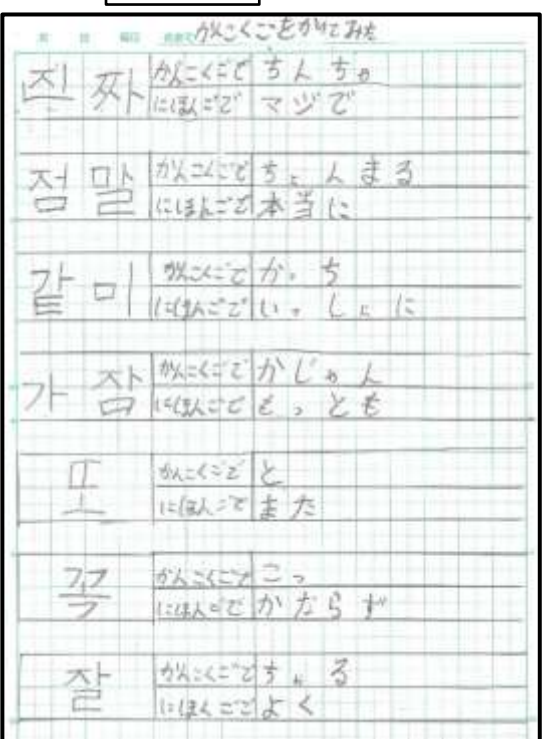 かんこくごをかいてみた
진짜 かんこくごで ちんちゃ
にほんごで マヅで
점말 かんこくごで ちょんまる
にほんごで 本当に
같미 かんこくごで かっち
にほんごで いっしょに
가잠 かんこくごで かじゃん
にほんごで もっとも
또 かんこくごで と
にほんごで また
꼭 かんこくごで こっ
にほんごで かならず
잘 かんこくごで ちゃる
にほんごで よく